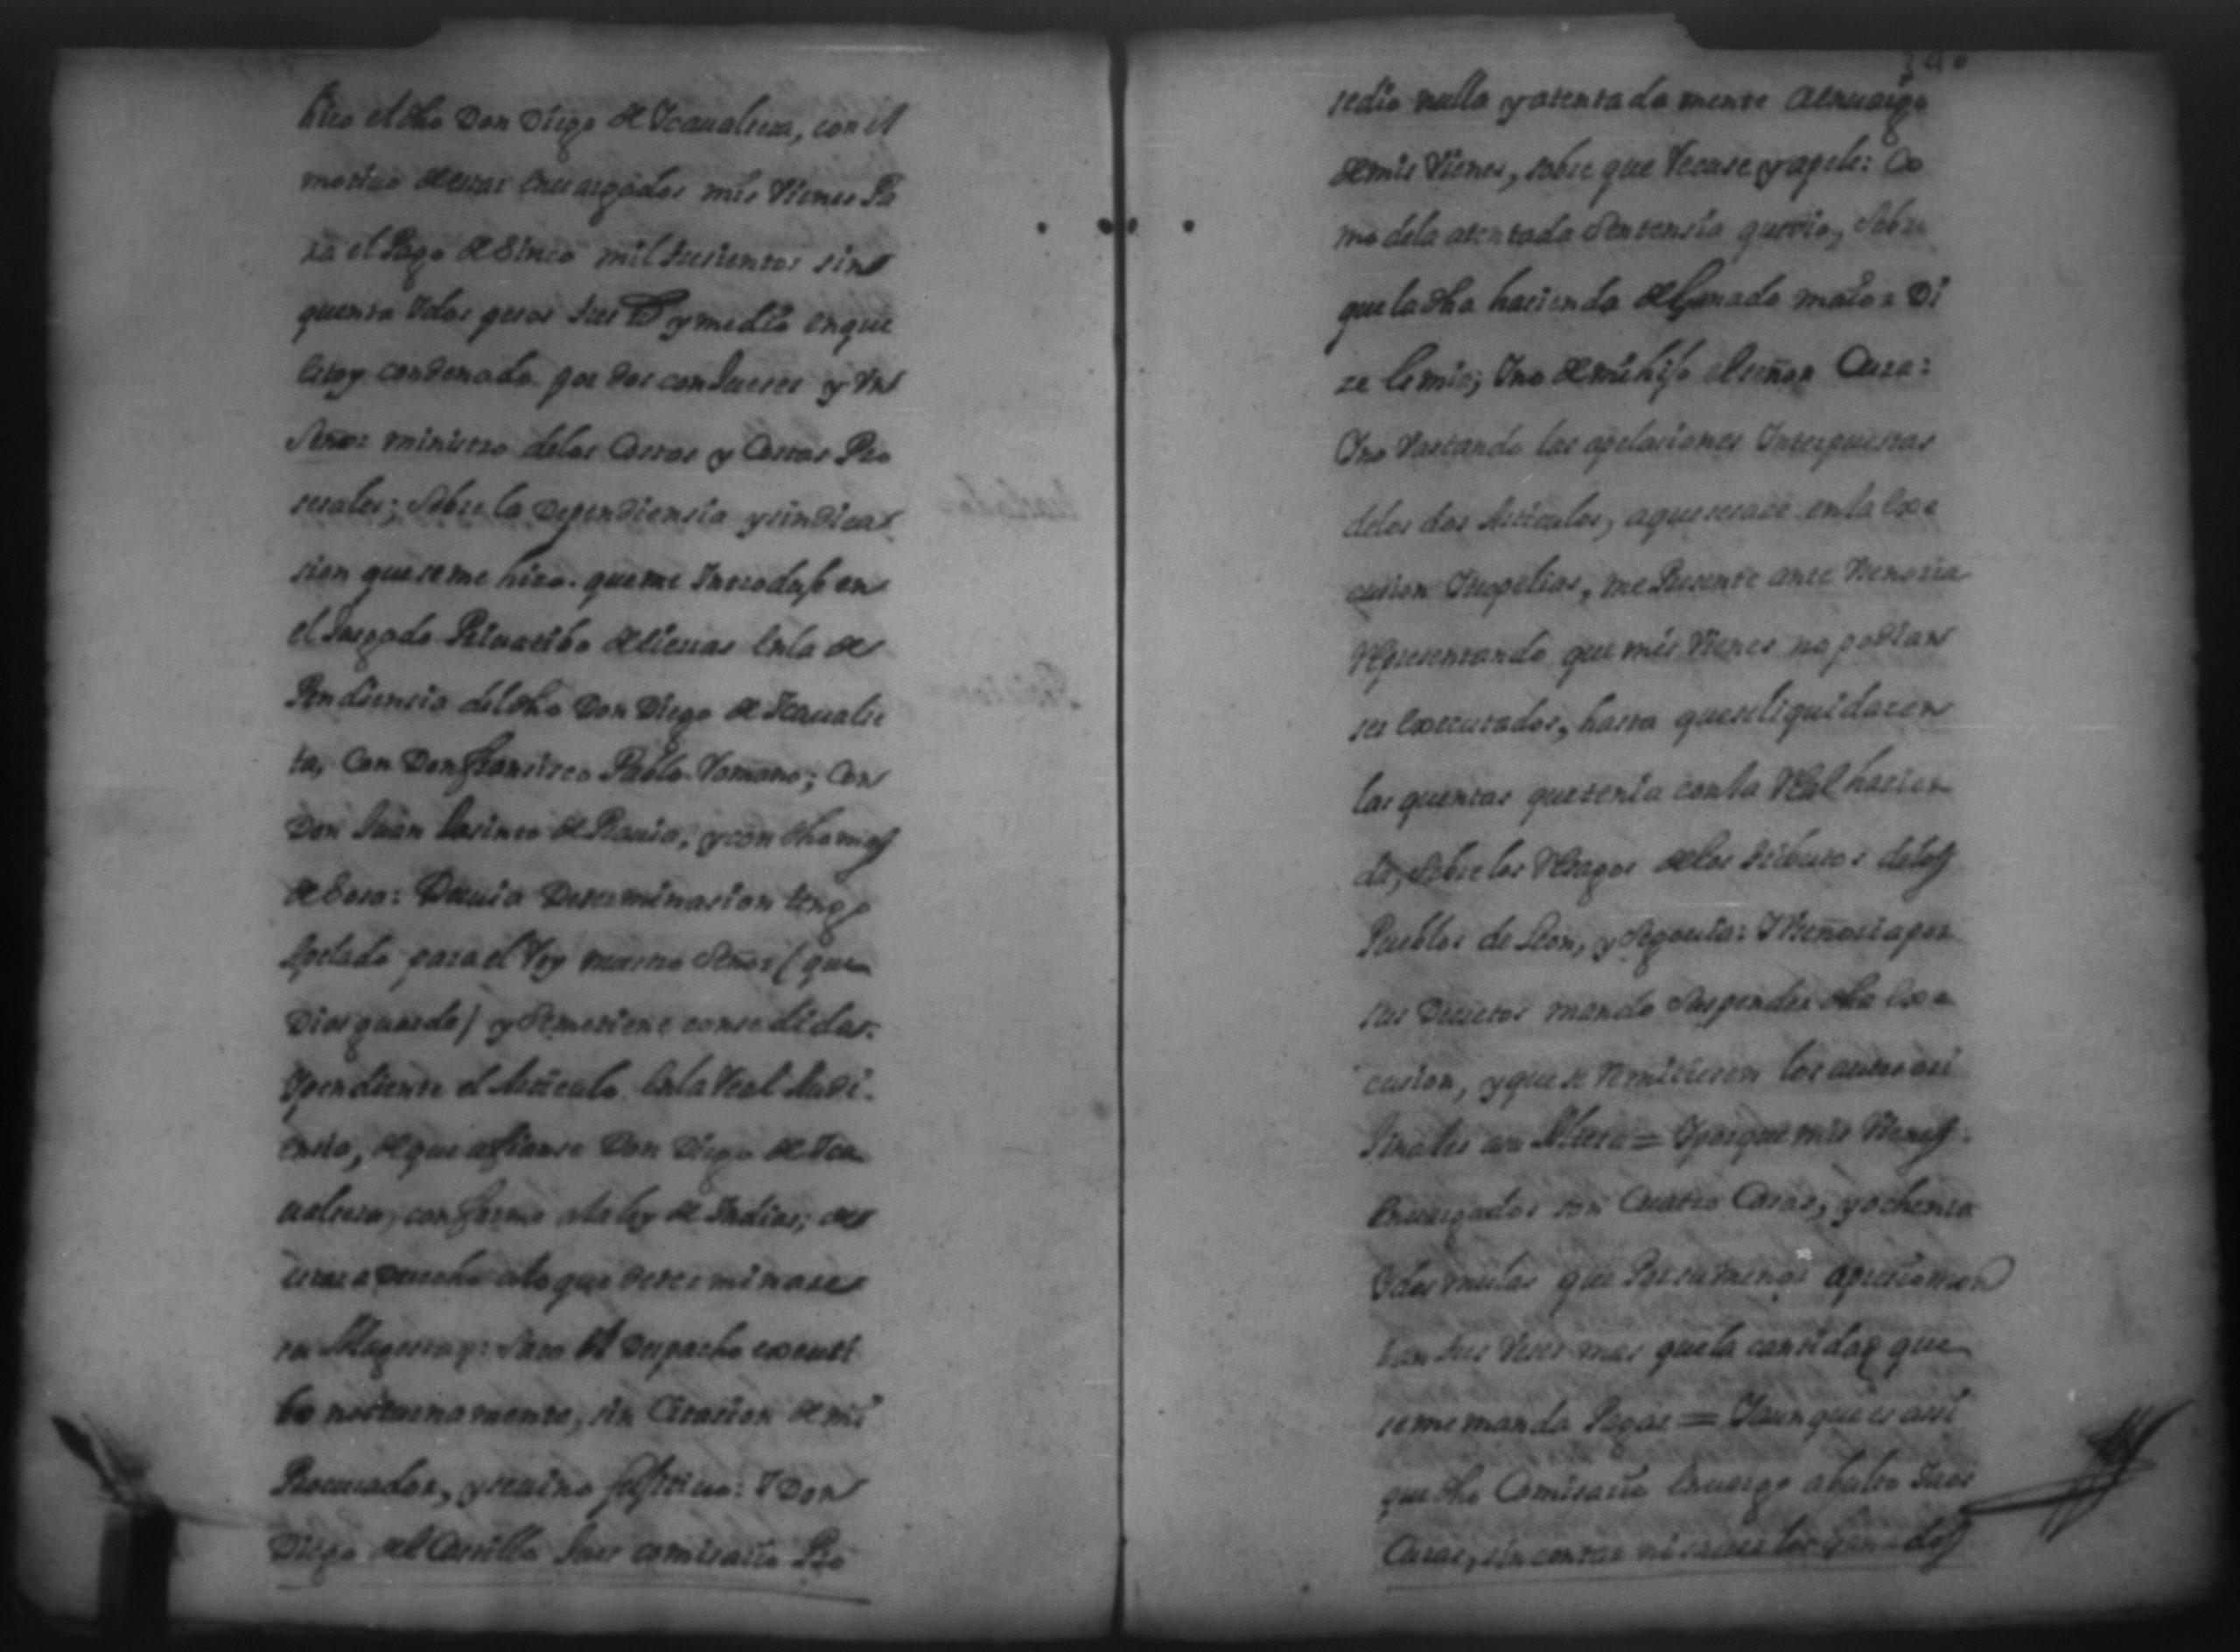 hizo el dho Don Diego de Icaualseta, con el
motiuo de estar enuargados mis Vienes Pa
ra el Pago de Sinco mil tresientos sin
quenta Ydos pesos tres Rs y medio en que
estoy condenado por dos con Jueses y Vn
Señor ministro delas Costas y Costas Pro
sesales; Sobre la Dependiensia y sindica
sion que se me hizo. que me Introduse en
el Jusgado Priuatibo de tierras enla de
Pendiensia del dho Don Diego de Icaualse
ta, Con Don Fransisco Pablo Romano; Con
Don Juan Jasinto de Pauia, y con thomas
de Soto: De cuia Determinasion tengo
Apelado para el Rey nuestro Señor (que
Dios guarde) y Se me tiene consedida.
Y pendiente el Articulo enla Real Audi
ensia, de que afianse Don Diego de Ica
ualseta, conforme ala ley de Indias; de
estar a derecho alo que determinare
su Magestad y: Saco el Despacho executi
bo nocturnamente, sin Citasion de mi
Procurador, y se uino festiuo: Y Don
Diego del Castillo Jues comisario Pro
sedio nulla y atentada mente al enuargo
de mis Vienes, sobre que Recuse y apele: Co
mo dela atentada Sentensia que dio, Sobre
que la dha hasienda de Ganado maior Di
se es mia; Yno de mi hijo el señor Cura:
Yno Vastando las apelasiones Interpuestas
delos dos Articulos, a que sesase enla exe
cusion Ytropelias, me Presente ante Vsenoria
Representando que mis Vienes no podian
ser executados, hasta que se liquidasen
las quentas que tenia conla Real hasien
da, Sobre los Resagos delos tributos delos
Pueblos de Leon, y Segouia: Y Vseñoria por
sus Decretos mando Suspender dha exe
cusion, y que se Remitiesen los autos ori
jinales = Y porque mis Vienes
enuargados son Cuatro Casas, y ochenta
Ydos mulas que
tan tres Veses mas que la cantidad que
se me manda Pagar = Y aun que es assi
que dho Comisario enuargo abulto
Casas, sin contar ni los ganados